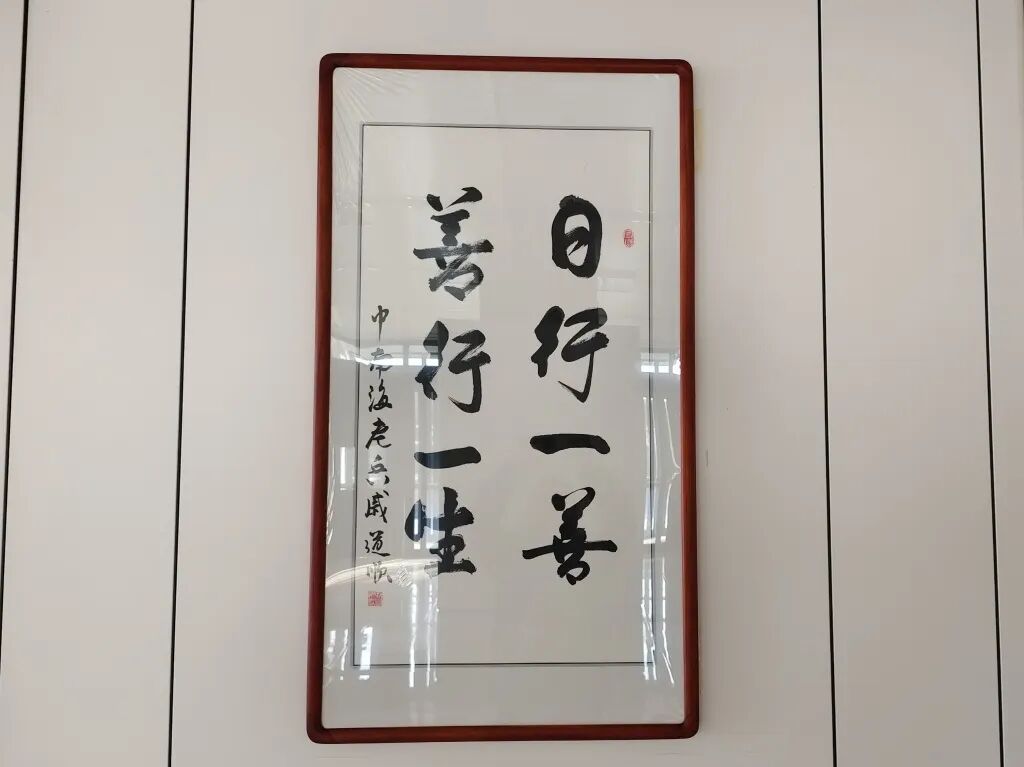 日行一善
善行一生
中南海老兵戚道顺